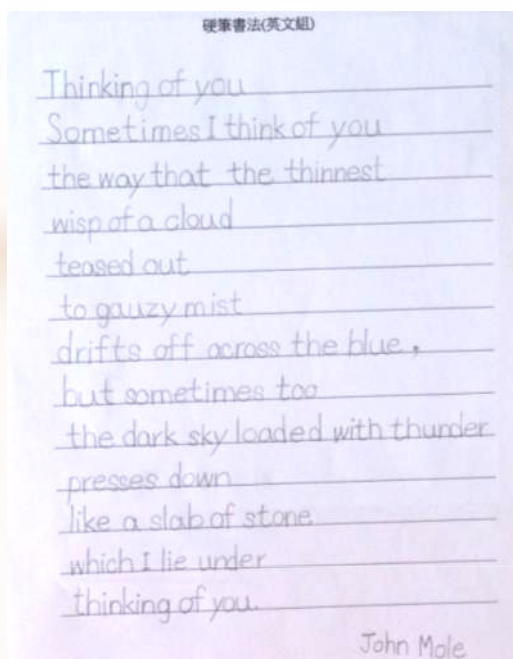 硬筆書法(英文組)
Thinking of you
Sometimes I think of you
the way that the thinnest
wisp of a cloud
teased out
to gauzy mist
drifts off across the blue,
but sometimes too
the dark sky loaded with thunder
presses down
like a slab of stone
which I lie under
thinking of you.
John Mole